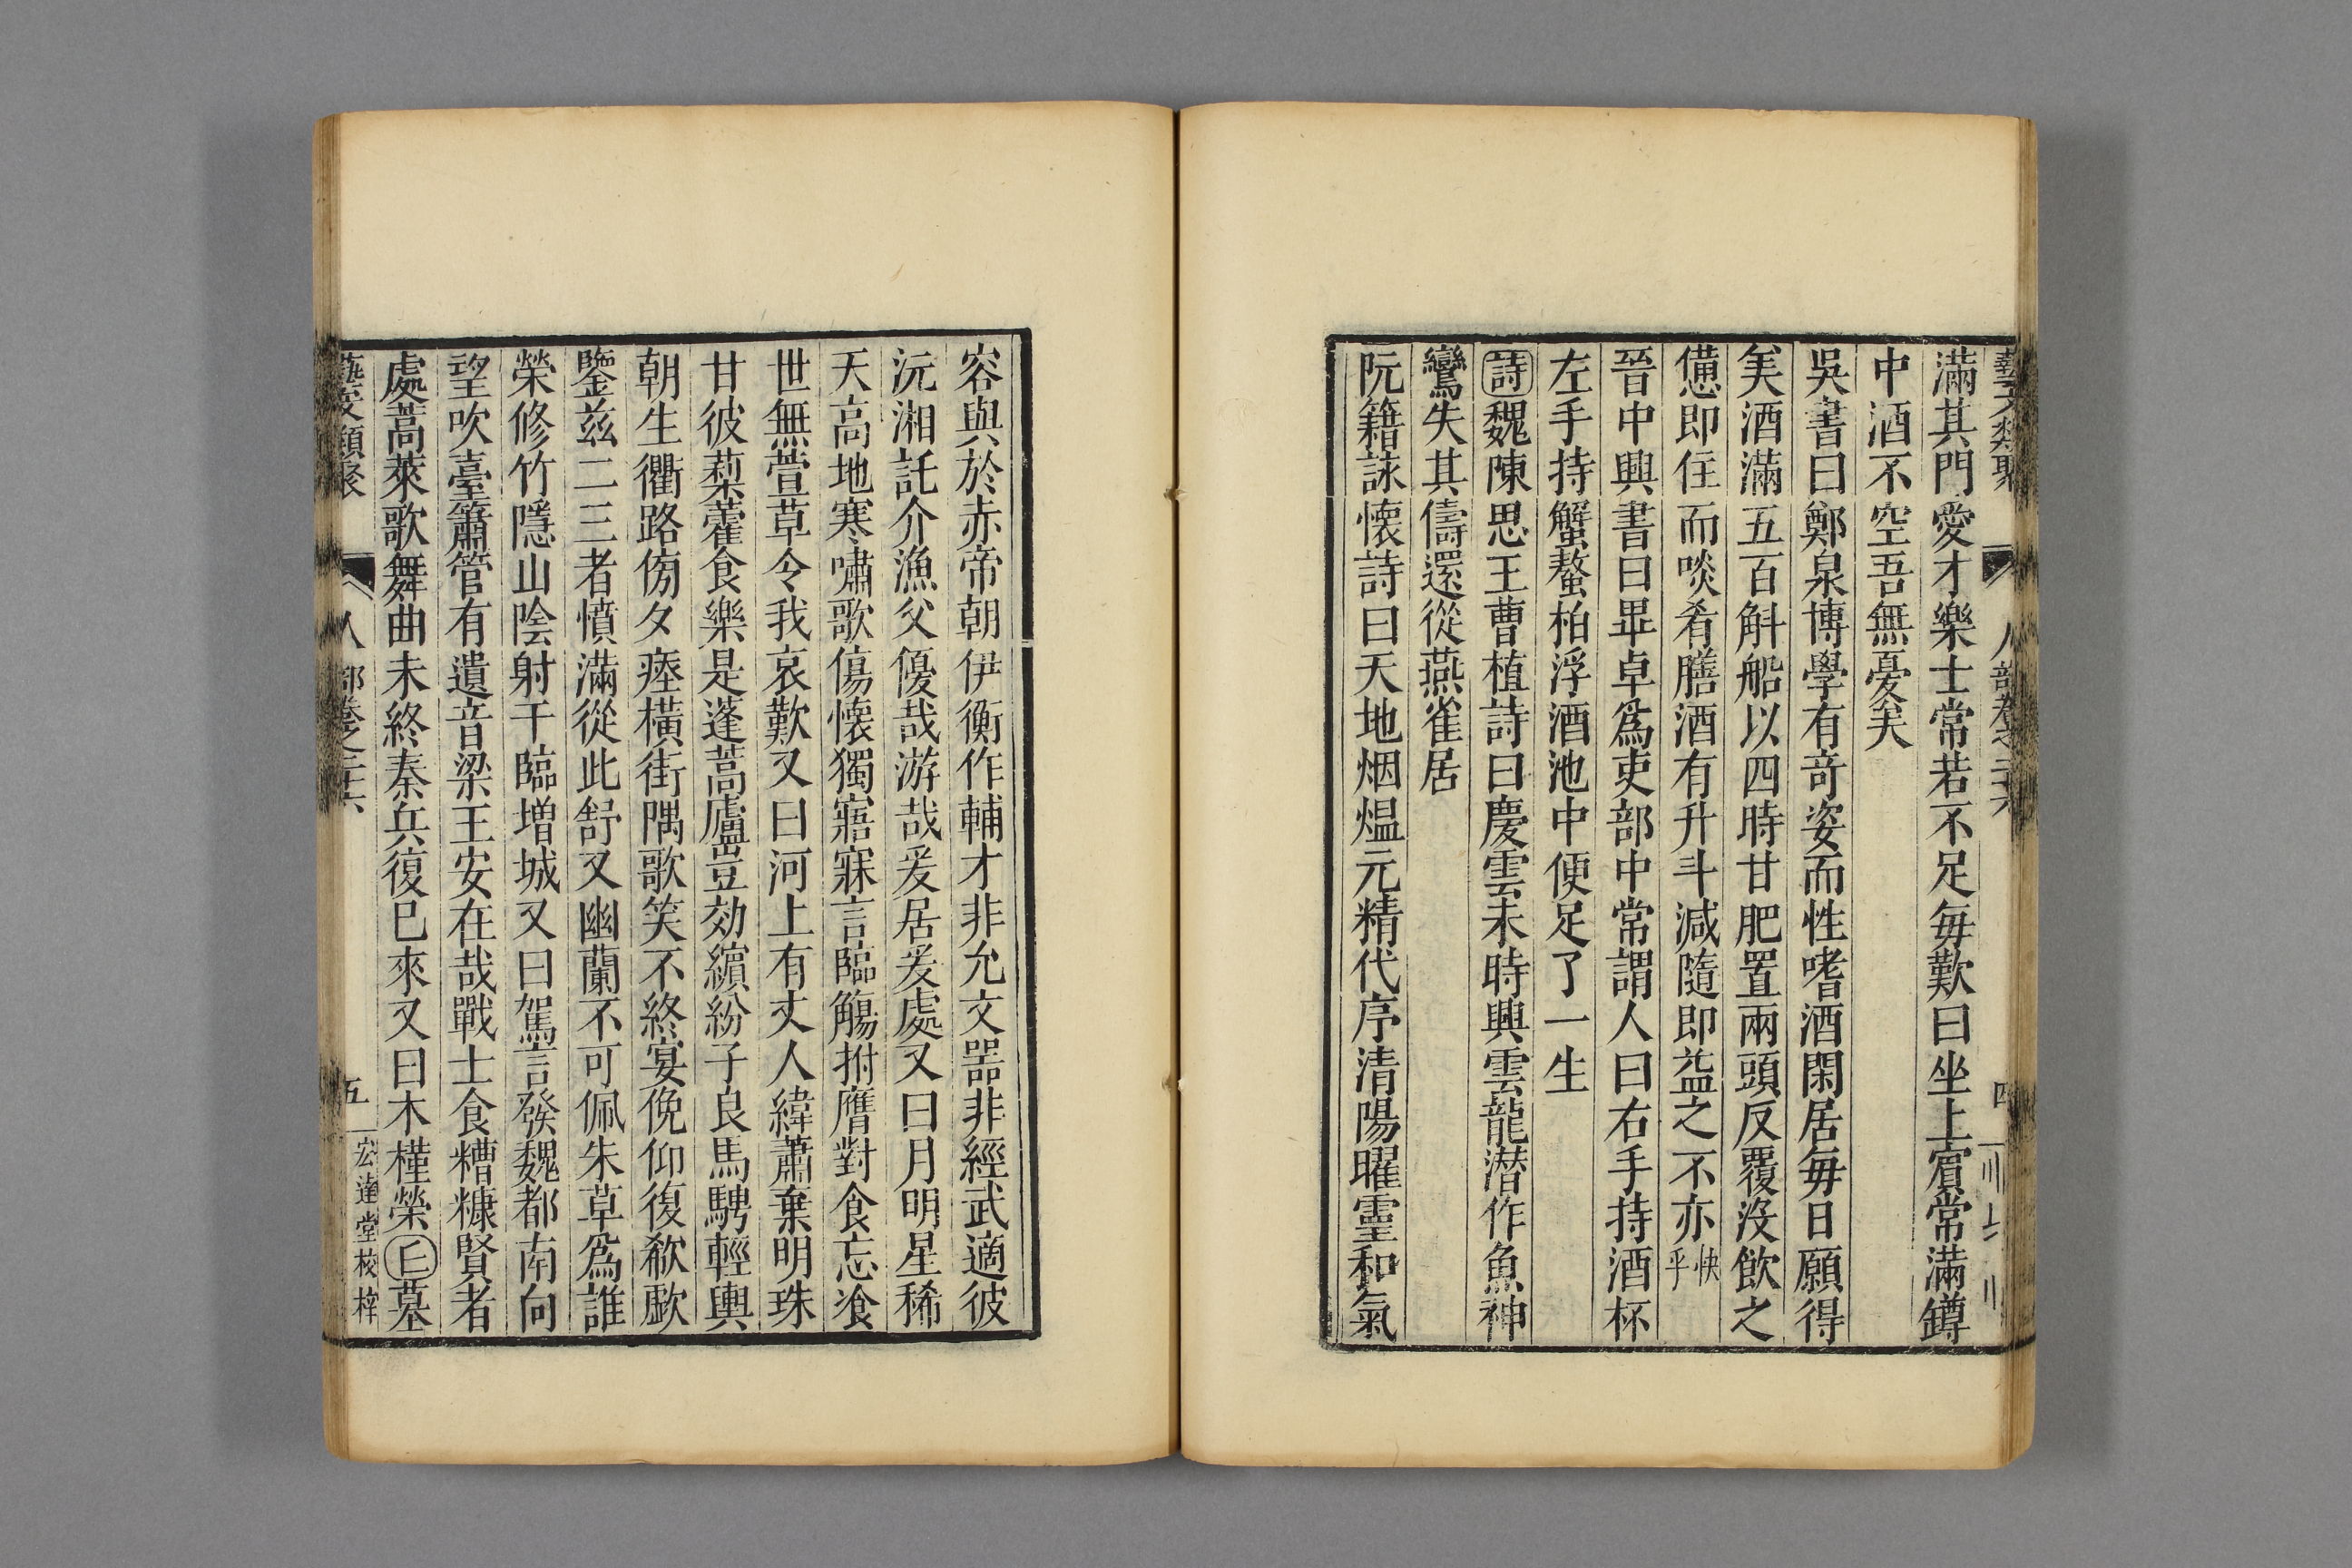 藝文類聚 人部卷之二十六 四
滿其門愛才樂士常若不足每歎曰坐上賓常滿罇
中酒不空吾無憂矣
吳書曰鄭泉博學有奇姿而性嗜酒閑居每日願得
美酒滿五百斛船以四時甘肥置兩頭反覆沒飲之
憊即住而啖肴膳酒有升斗減隨即益之不亦快乎
晉中興書曰畢卓為吏部中常謂人曰右手持酒杯
左手持蟹螯柏浮酒池中便足了一生
詩魏陳思王曹植詩曰慶雲未時興雲龍潛作魚神
鸞失其儔還從燕雀居
阮籍詠懷詩曰天地烟熅元精代序清陽曜靈和氣
容與於赤帝朝伊衡作輔才非允文器非經武適彼
沅湘託介漁父優哉游哉爰居爰處又曰月明星稀
天高地寒嘯歌傷懷獨寤寐言臨觴拊膺對食忘飡
世無萱草令我哀歎又曰河上有丈人緯蕭棄明珠
甘彼藜藿食樂是蓬蒿廬豈効繽紛子良馬騁輕輿
朝生衢路傍夕瘞橫街隅歌笑不終宴俛仰復欷歔
鑒茲二三者憤滿從此舒又幽蘭不可佩朱草為誰
榮修竹隱山陰射干臨增城又曰駕言發魏都南向
望吹臺簫管有遺音梁王安在哉戰士食糟糠賢者
處蒿萊歌舞曲未終秦兵復已來又曰木槿榮丘墓
藝文類聚 人部卷之二十六 五 宏達堂校梓